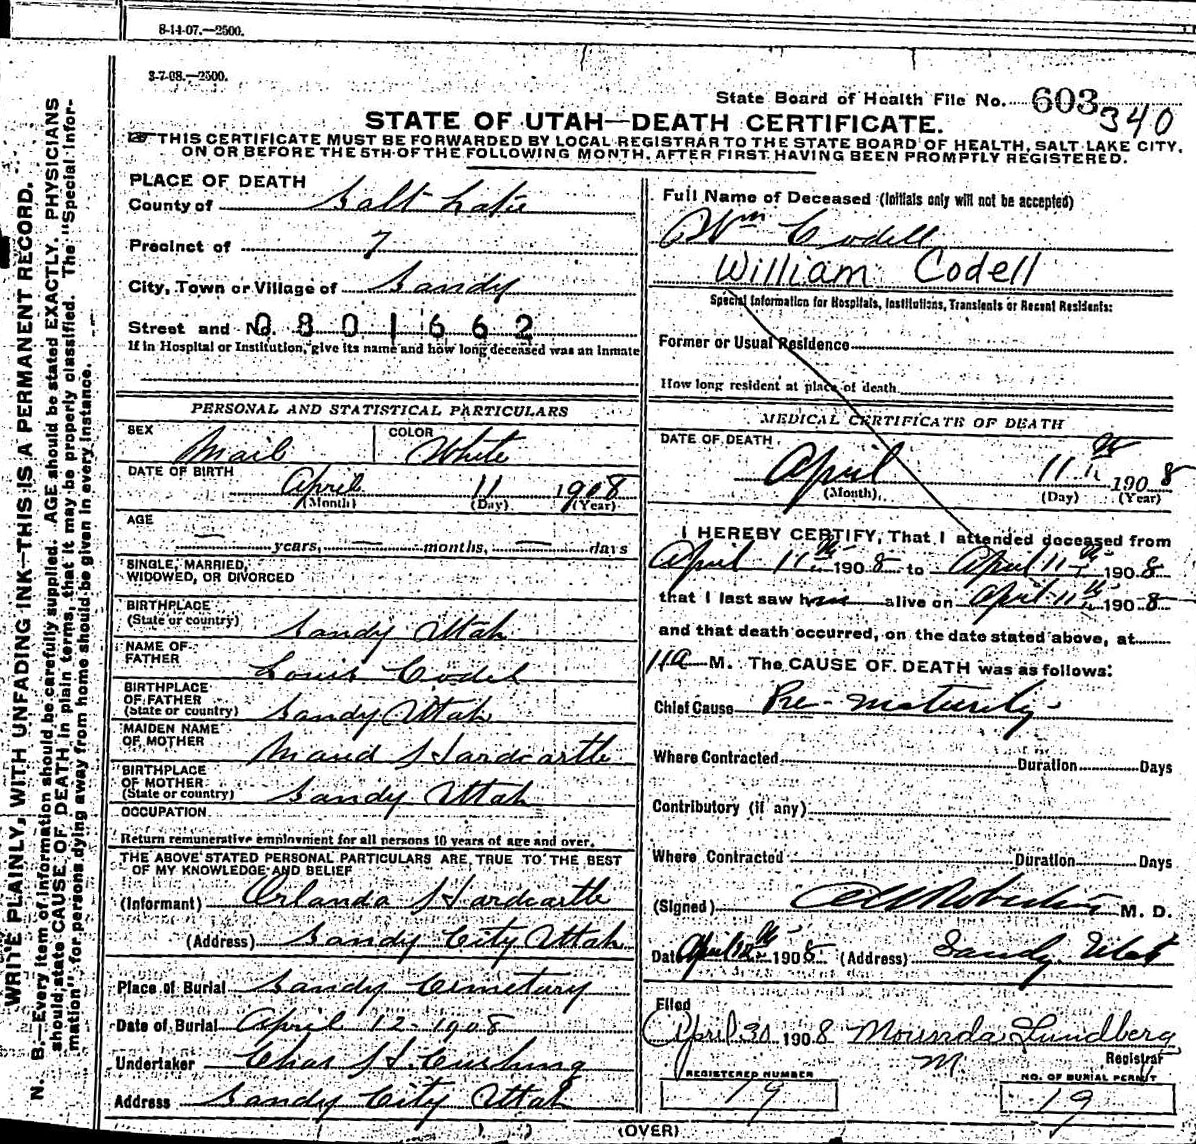 8-14-07.—2500.
3-7-08.—2500.
State Board of Health File No. 603 340
STATE OF UTAH—DEATH CERTIFICATE.
THIS CERTIFICATE MUST BE FORWARDED BY LOCAL REGISTRAR TO THE STATE BOARD OF HEALTH, SALT LAKE CITY,
ON OR BEFORE THE 5TH OF THE FOLLOWING MONTH, AFTER FIRST HAVING BEEN PROMPTLY REGISTERED.
WRITE PLAINLY, WITH UNFADING INK—THIS IS A PERMANENT RECORD.
N. B.—Every item of information should be carefully supplied. AGE should be stated EXACTLY. PHYSICIANS
should state CAUSE OF DEATH in plain terms, that it may be properly classified. The "Special Infor-
mation" for persons dying away from home should be given in every instance.
PLACE OF DEATH
County of Salt Lake
Precinct of 7
City, Town or Village of Sandy
Street and No. 0801662
If in Hospital or Institution, give its name and how long deceased was an inmate
PERSONAL AND STATISTICAL PARTICULARS
SEX Mail COLOR White
DATE OF BIRTH April 11 1908
(Month) (Day) (Year)
AGE
— years, — months, — days
SINGLE, MARRIED,
WIDOWED, OR DIVORCED
BIRTHPLACE
(State or country) Sandy Utah
NAME OF
FATHER Louis Codel
BIRTHPLACE
OF FATHER
(State or country) Sandy Utah
MAIDEN NAME
OF MOTHER Maud Hardcastle
BIRTHPLACE
OF MOTHER
(State or country) Sandy Utah
OCCUPATION
Return remunerative employment for all persons 10 years of age and over.
THE ABOVE STATED PERSONAL PARTICULARS ARE TRUE TO THE BEST
OF MY KNOWLEDGE AND BELIEF
(Informant) Orlando Hardcastle
(Address) Sandy City Utah
Place of Burial Sandy Cemetary
Date of Burial April 12 - 1908
Undertaker Chas H. Cushing
Address Sandy City Utah
Full Name of Deceased (Initials only will not be accepted)
Wm Codell
William Codell
Special Information for Hospitals, Institutions, Transients or Recent Residents:
Former or Usual Residence
How long resident at place of death
MEDICAL CERTIFICATE OF DEATH
DATE OF DEATH
April 11th 1908
(Month) (Day) (Year)
I HEREBY CERTIFY, That I attended deceased from
April 11th 1908 to April 11th 1908
that I last saw him alive on April 11th 1908
and that death occurred, on the date stated above, at
11a M. The CAUSE OF DEATH was as follows:
Chief Cause Pre-maturity
Where Contracted Duration Days
Contributory (if any)
Where Contracted Duration Days
(Signed) M. D.
Date April 1908 (Address) Sandy, Utah
Filed
April 30 1908 Mounda Lundberg
M Registrar
REGISTERED NUMBER NO. OF BURIAL PERMIT
19 19
(OVER)